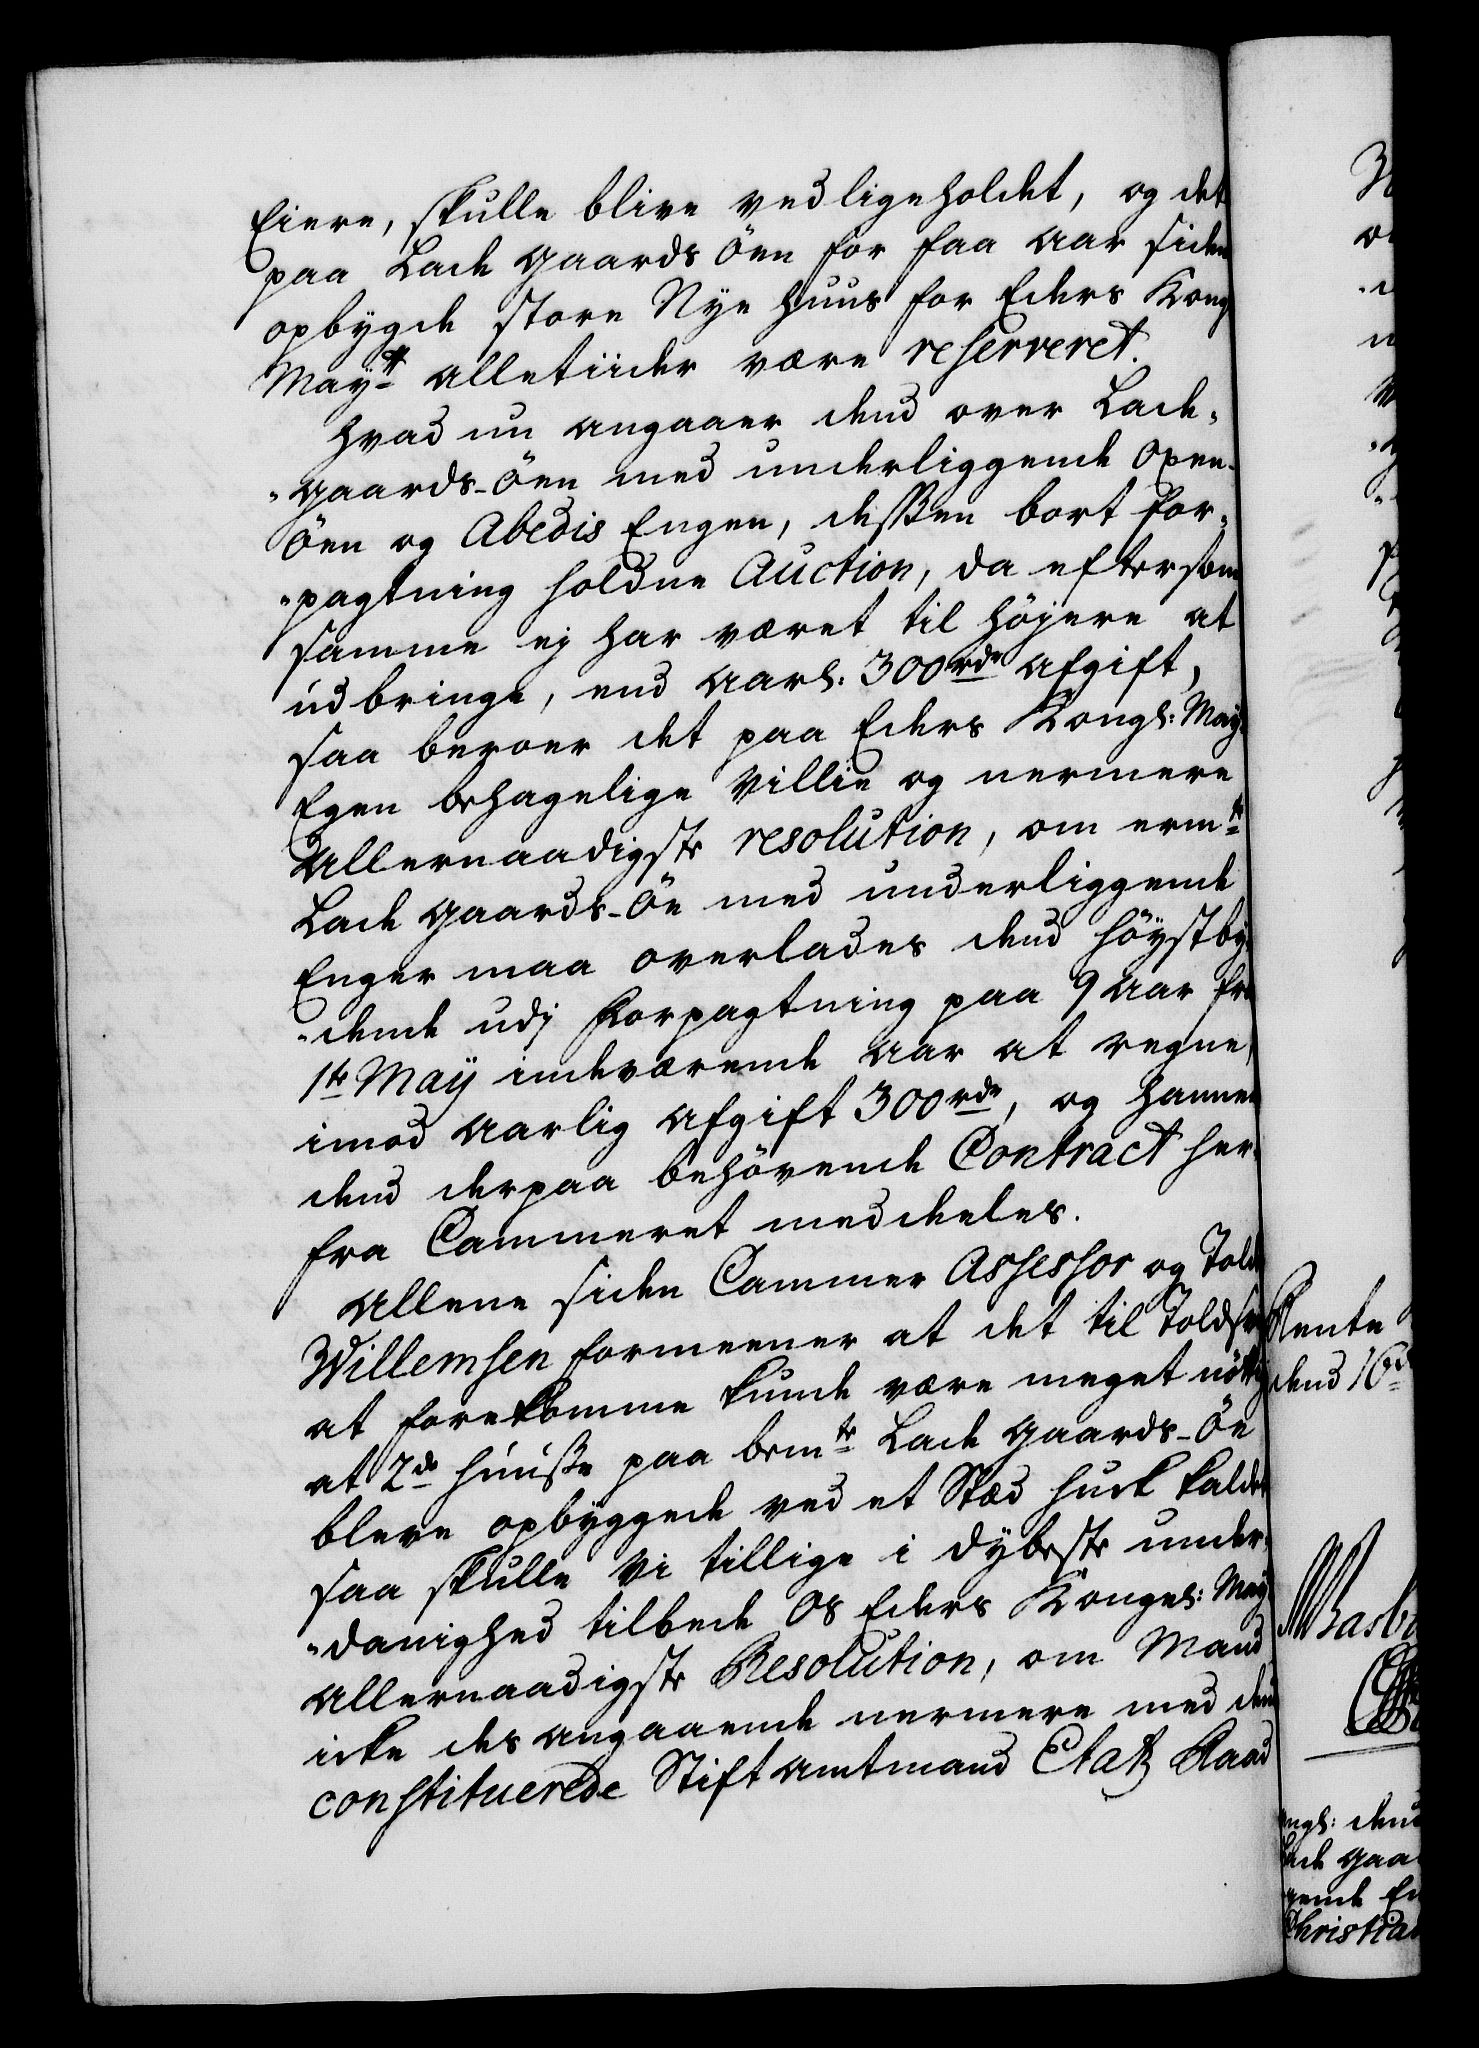 Eiere, skulle blive vedligeholdet, og det
paa Lade gaards Öen for faa aar siden
opbygde store Nye Huus for Eders Kong
Mayt alletiider være reserveret.
Hvad nu angaaer dend over Lade-
"gaards-Öen med underliggende Oxen-
Öen og Abedis Engen, dessen bort for-
"pagtning holdne Auction, da eftersom
samme ej har været til höjere at
udbringe, end aarl: 300rdr afgift,
saa beroer det paa Eders Kongl: May
Egen behagelige Villie og nermere
Allernaadigste resolution, om ermte
Lade gaards-Öe med underliggende
Enger maa overlades dend höystby-
"dende udj Forpagtning paa 9 aar fra
1te Maÿ indeværende aar at regne,
imod aarlig afgift 300rdr, og hannem
dend derpaa behövende Contract her-
fra Cammeret meddeeles.
Allene siden Cammer Assessor og Told
Willemsen formeener at det til Toldsv
at forekomme kunde være meget nöttig
at 2de huuse paa bemte Lade gaards-Öe
bleve opbyggede ved et Stæd Huck kaldet
saa skulle Vi tillige i dybeste under-
"danighed tilbede Os Eders Kongel: May
Allernaadigste Resolution, om Mand
icke desangaaende nermere med den
constituerede Stift amtmand Etatz Raad
Rente
dend 16de
ngl: dend
Lade gaa
gende En
Christian